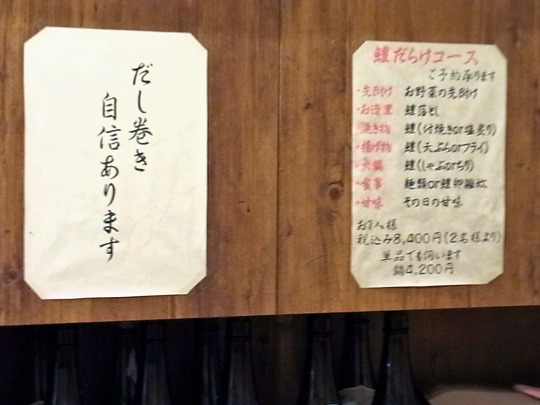 だし巻き
自信あります
鱧だらけコース
ご予約承ります
・先附け お野菜の先附け
・お造里 鱧落とし
・焼き物 鱧(付焼きor塩炙り)
・揚げ物 鱧(天ぷらorフライ)
・大鍋 鱧(しゃぶorちり)
・食事 麺類or鱧卵雑炊
・甘味 その日の甘味
お1人様
税込み8,400円(2名様より)
単品でも伺います
鍋4,200円